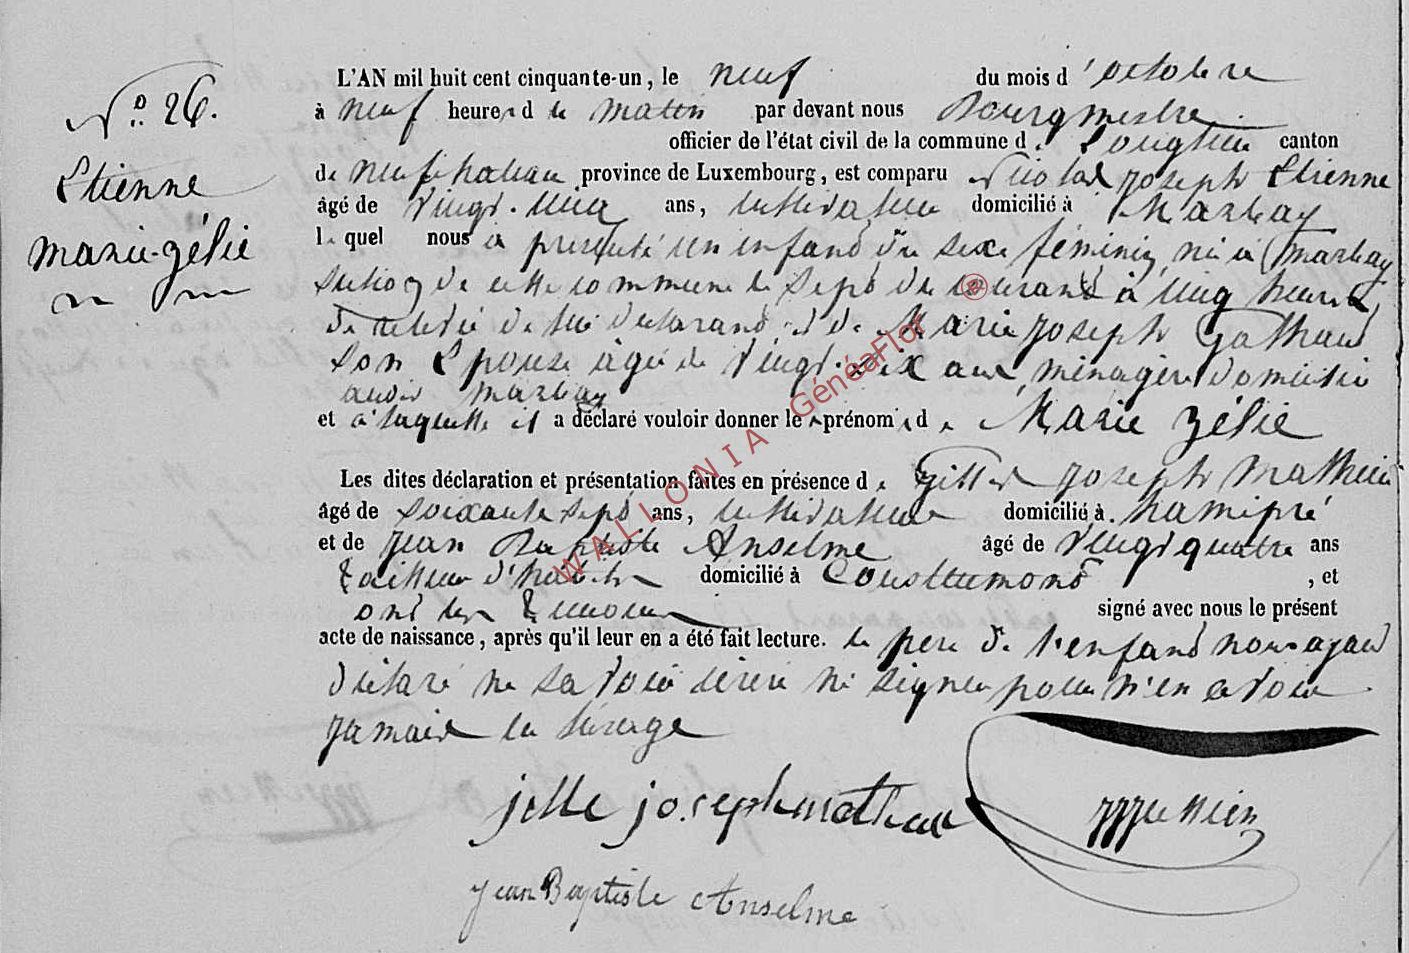 N° 26.
Etienne
marie-zélie
L'AN mil huit cent cinquante-un, le neuf du mois d'octobre
à neuf heures du matin par devant nous Bourgmestre
officier de l'état civil de la commune de Longlier canton
de neufchateau province de Luxembourg, est comparu Nicolas joseph Etienne
âgé de vingt-cinq ans, cultivateur domicilié à Marbay
lequel nous a présenté un enfant du sexe féminin, né à Marbay
section de cette commune le sept du courant à cinq heures
de relevée de lui déclarant et de Marie joseph
son Epouse âgée de vingt-six ans ménagère domicilié
audit Marbay
et à laquelle il a déclaré vouloir donner les prénoms de Marie Zélie
Les dites déclaration et présentation faites en présence de Gilles joseph Mathieu
âgé de soixante sept ans, cultivateur domicilié à hamipré
et de jean Baptiste Anselme âgé de vingt quatre ans
tailleur d'habits domicilié à Cousteumont, et
ont les témoins signé avec nous le présent
acte de naissance, après qu'il leur en a été fait lecture. le père de l'enfant nous ayant
déclaré ne savoir écrire ni signer pour n'en avoir
jamais eu l'usage
jille joseph mathieu
jean Baptiste Anselme
WALLONIA GénéaFlor ®